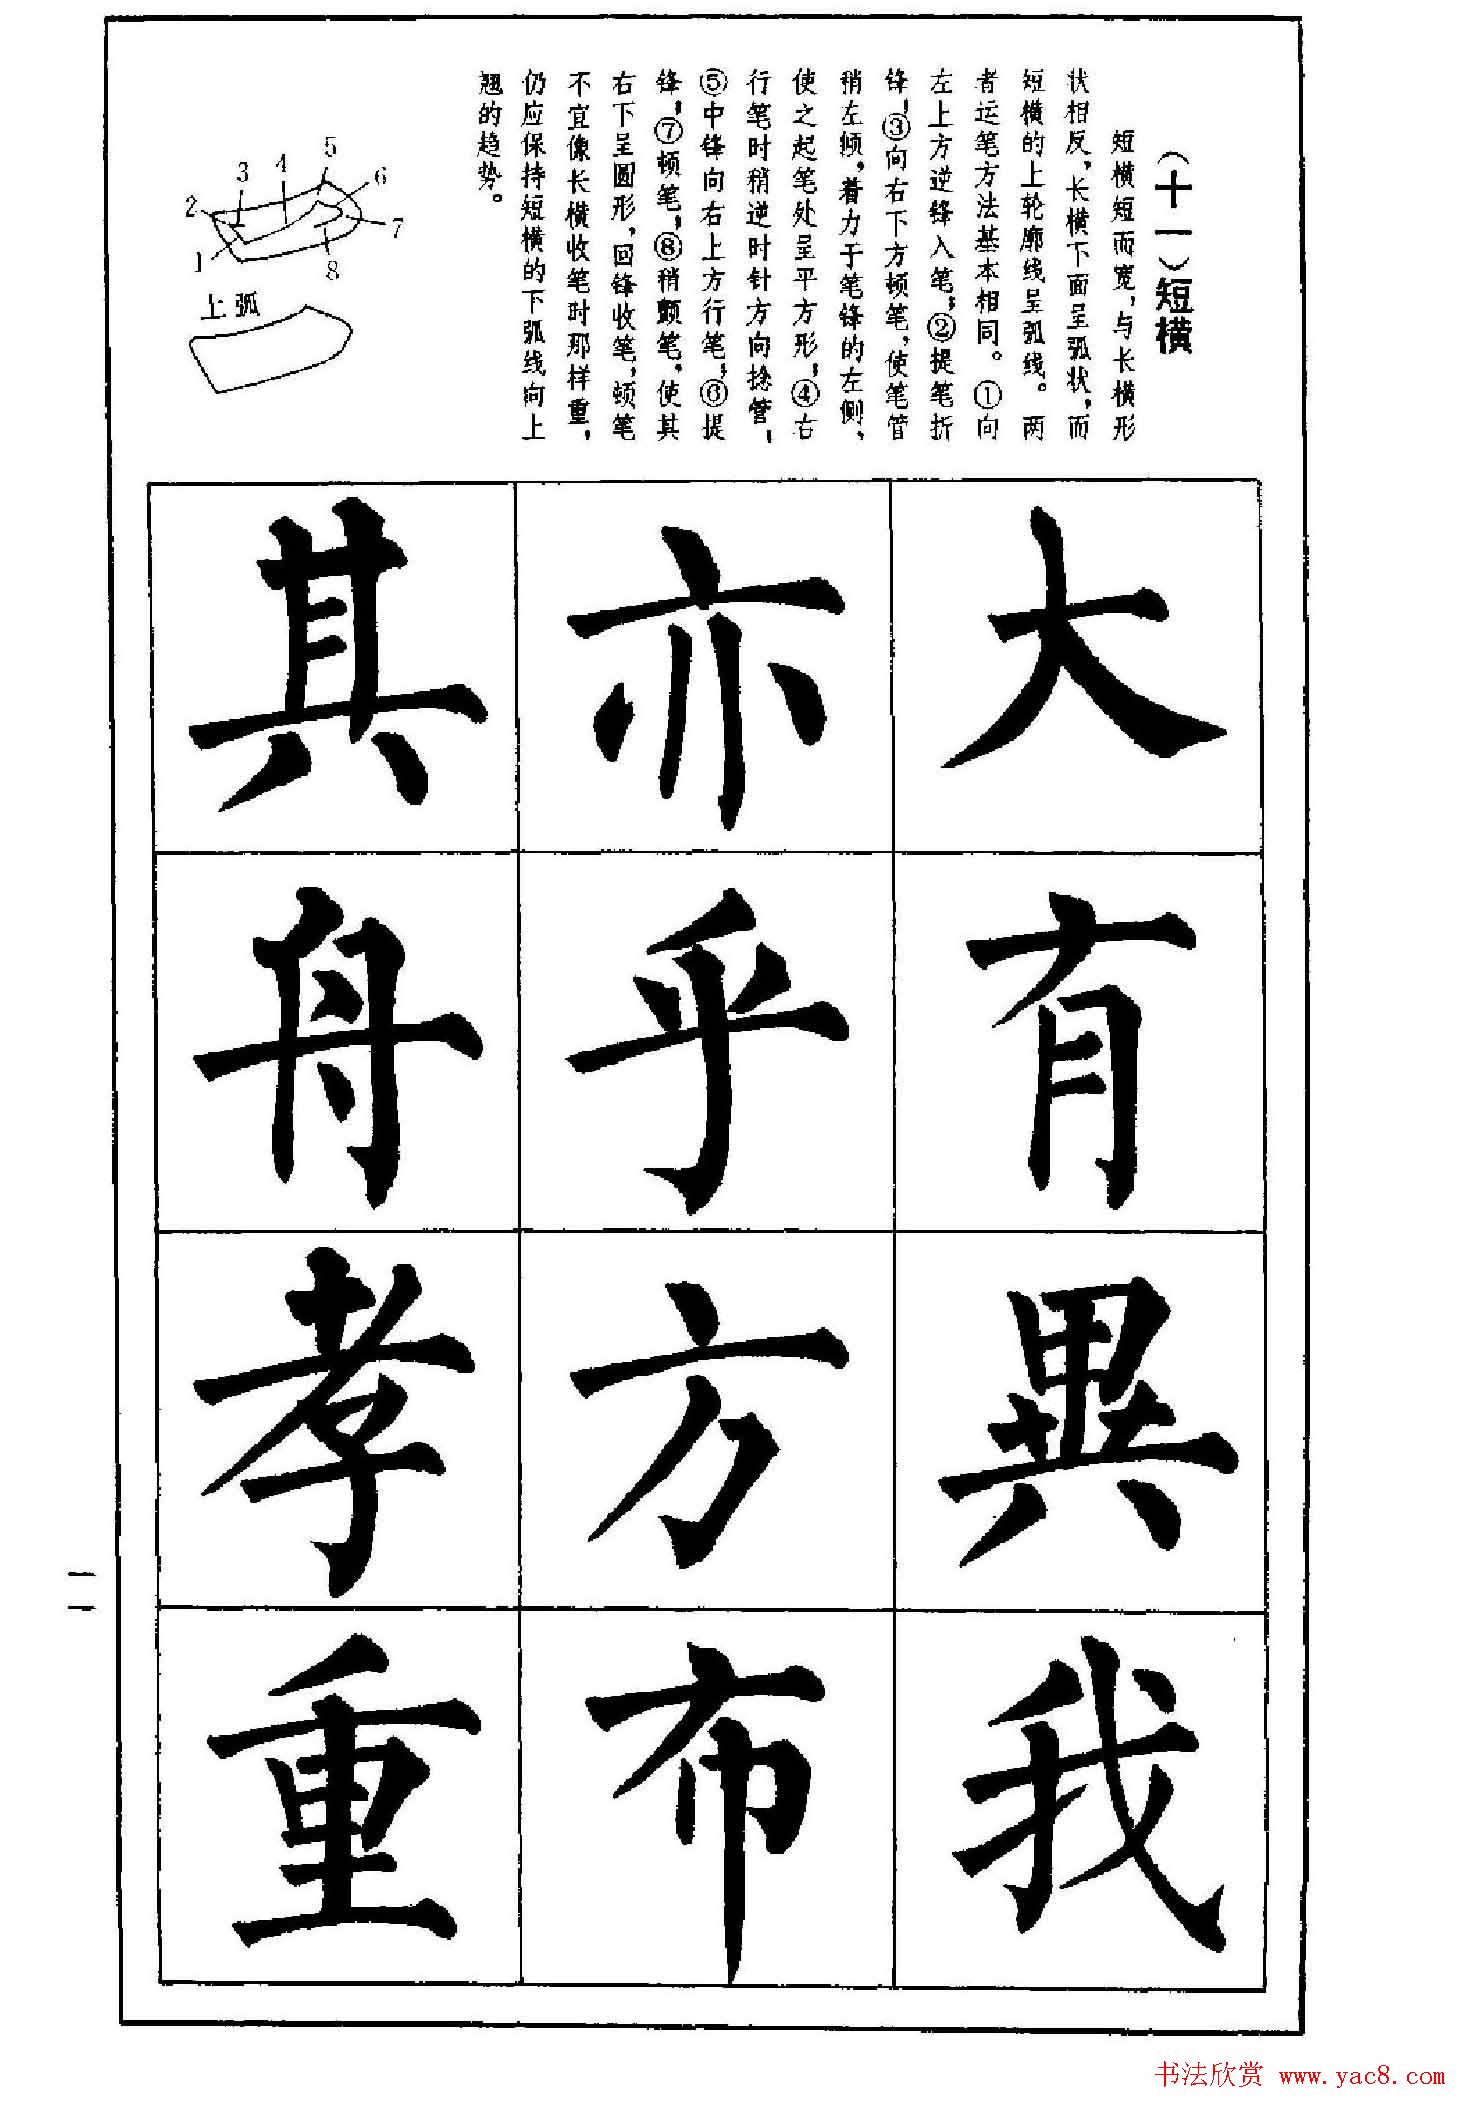 （十一）短横
短横短而宽，与长横形
状相反，长横下面呈弧状，而
短横的上轮廓线呈弧线。两
者运笔方法基本相同。①向
左上方逆锋入笔；②提笔折
锋；③向右下方顿笔，使笔管
稍左倾，着力于笔锋的左侧，
使之起笔处呈平方形；④右
行笔时稍逆时针方向捻管，
⑤中锋向右上方行笔；⑥提
锋；⑦顿笔；⑧稍颤笔，使其
右下呈圆形，回锋收笔，顿笔
不宜像长横收笔时那样重，
仍应保持短横的下弧线向上
翘的趋势。
1
2
3
4
5
6
7
8
上弧
大有異我
亦乎方布
其舟孝重
一一
书法欣赏 www.yac8.com